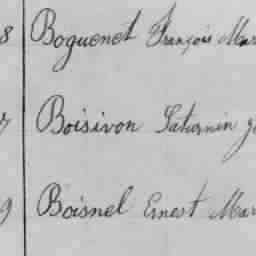 8 Boguenet François Mar
7 Boisivon Saturnin
9 Boisnel Ernest Mar